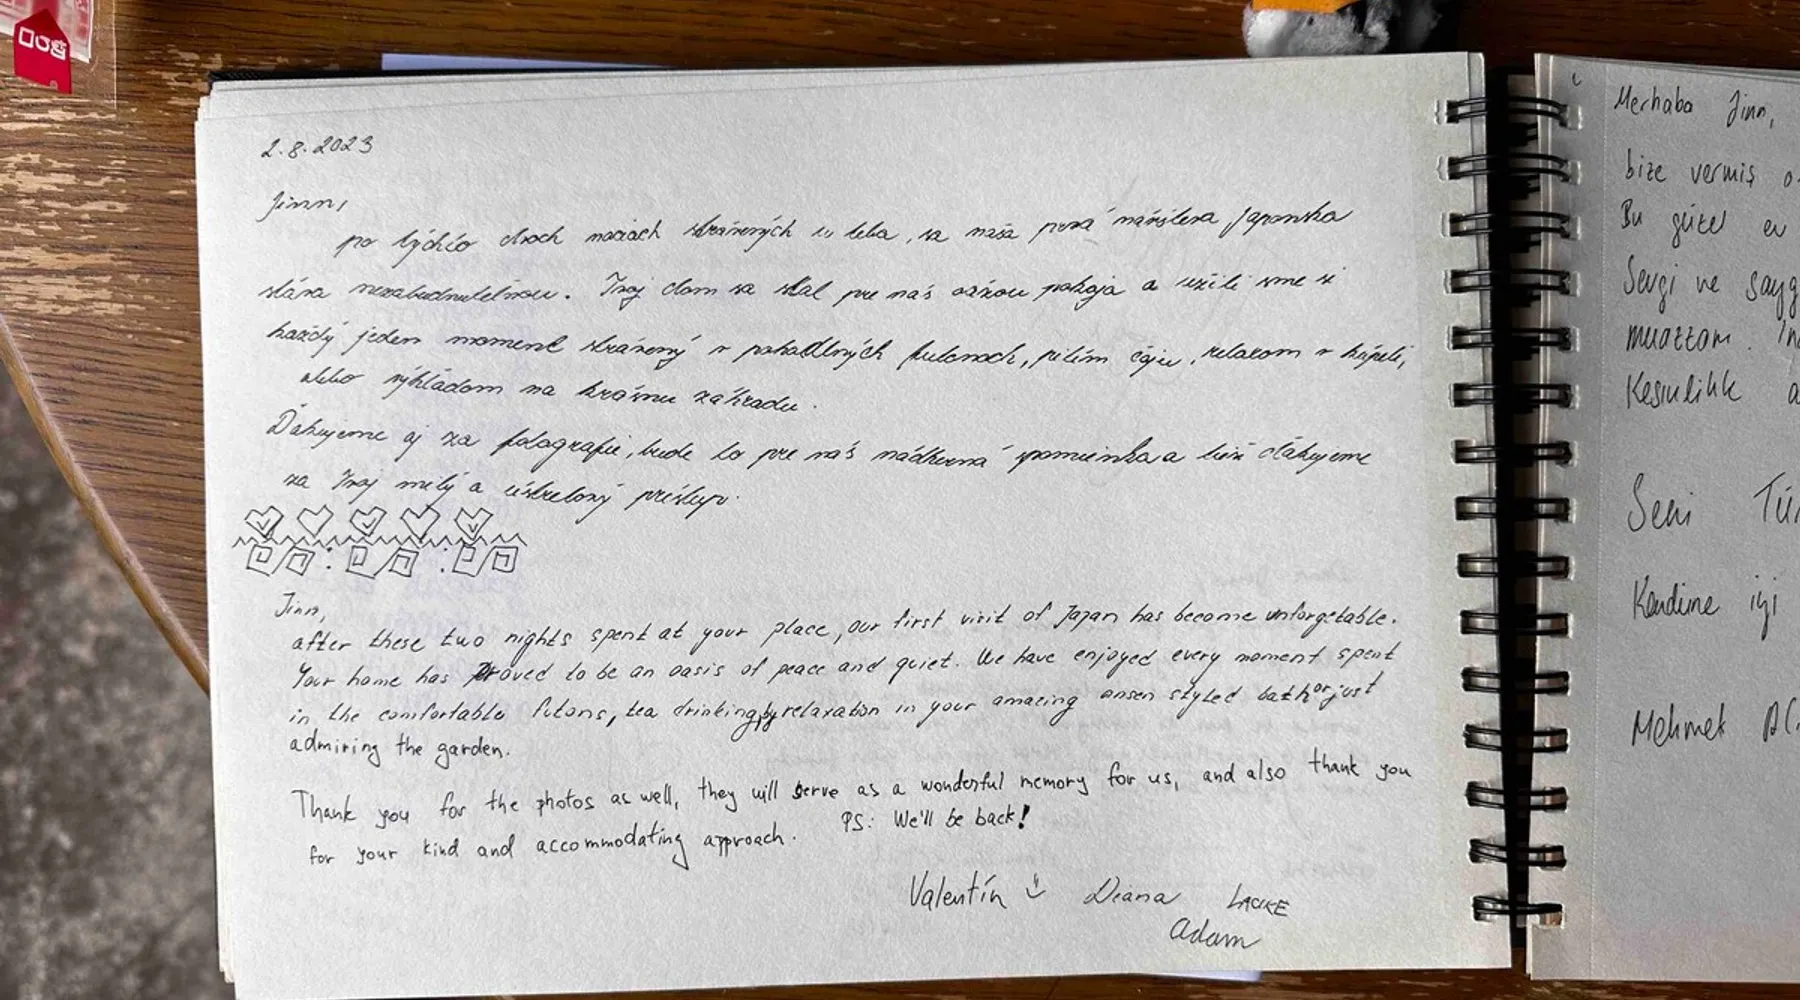 2.8.2023
Jinn,
po týchto dvoch nociach strávených u teba, sa naša prvá návšteva Japonska
stáva nezabudnuteľnou. Tvoj dom sa stal pre nás oázou pokoja a užili sme si
každý jeden moment strávený v pohodlných futonoch, pitím čaju, relaxom v kúpeli,
alebo výhľadom na krásnu záhradu.
Ďakujeme aj za fotografie, bude to pre nás nádherná spomienka a tiež ďakujeme
za Tvoj milý a ústretový prístup.
Jinn,
after these two nights spent at your place, our first visit of Japan has become unforgetable.
Your home has proved to be an oasis of peace and quiet. We have enjoyed every moment spent
in the comfortable futons, tea drinking, by relaxation in your amazing onsen styled bath or just
admiring the garden.
Thank you for the photos as well, they will serve as a wonderful memory for us, and also thank you
for your kind and accommodating approach. PS: We'll be back!
Valentín Diana
Adam
Merhaba Jinn,
bize vermiş
Bu güzel ev
Sevgi ve sayg
muazzam.
Kesinlikle
Seni Tür
Kendine iyi
Mehmet